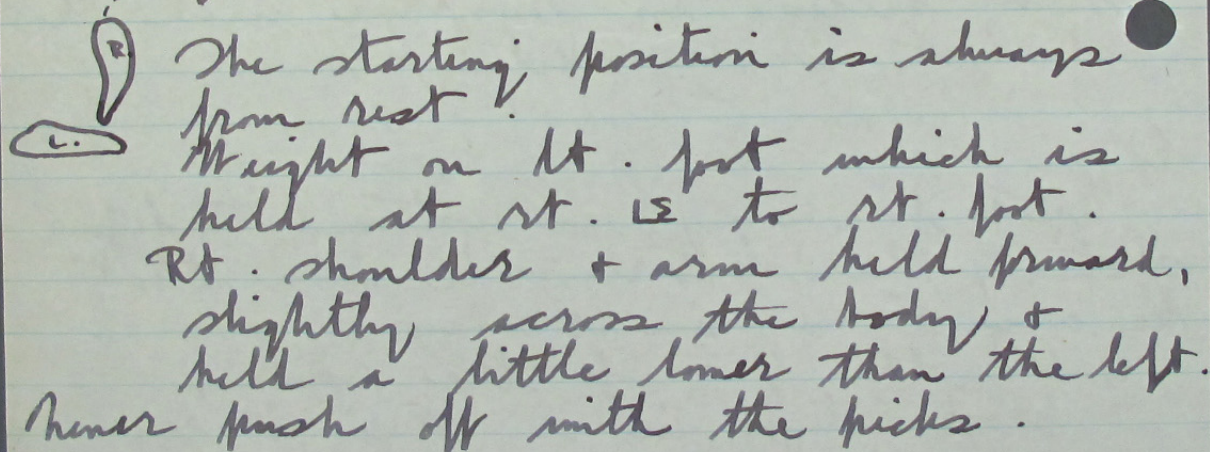 R. The starting position is always
from rest.
L. Weight on lt. foot which is
held at rt. ∟s to rt. foot.
Rt. shoulder & arm held forward,
slightly across the body &
held a little lower than the left.
Never push off with the picks.